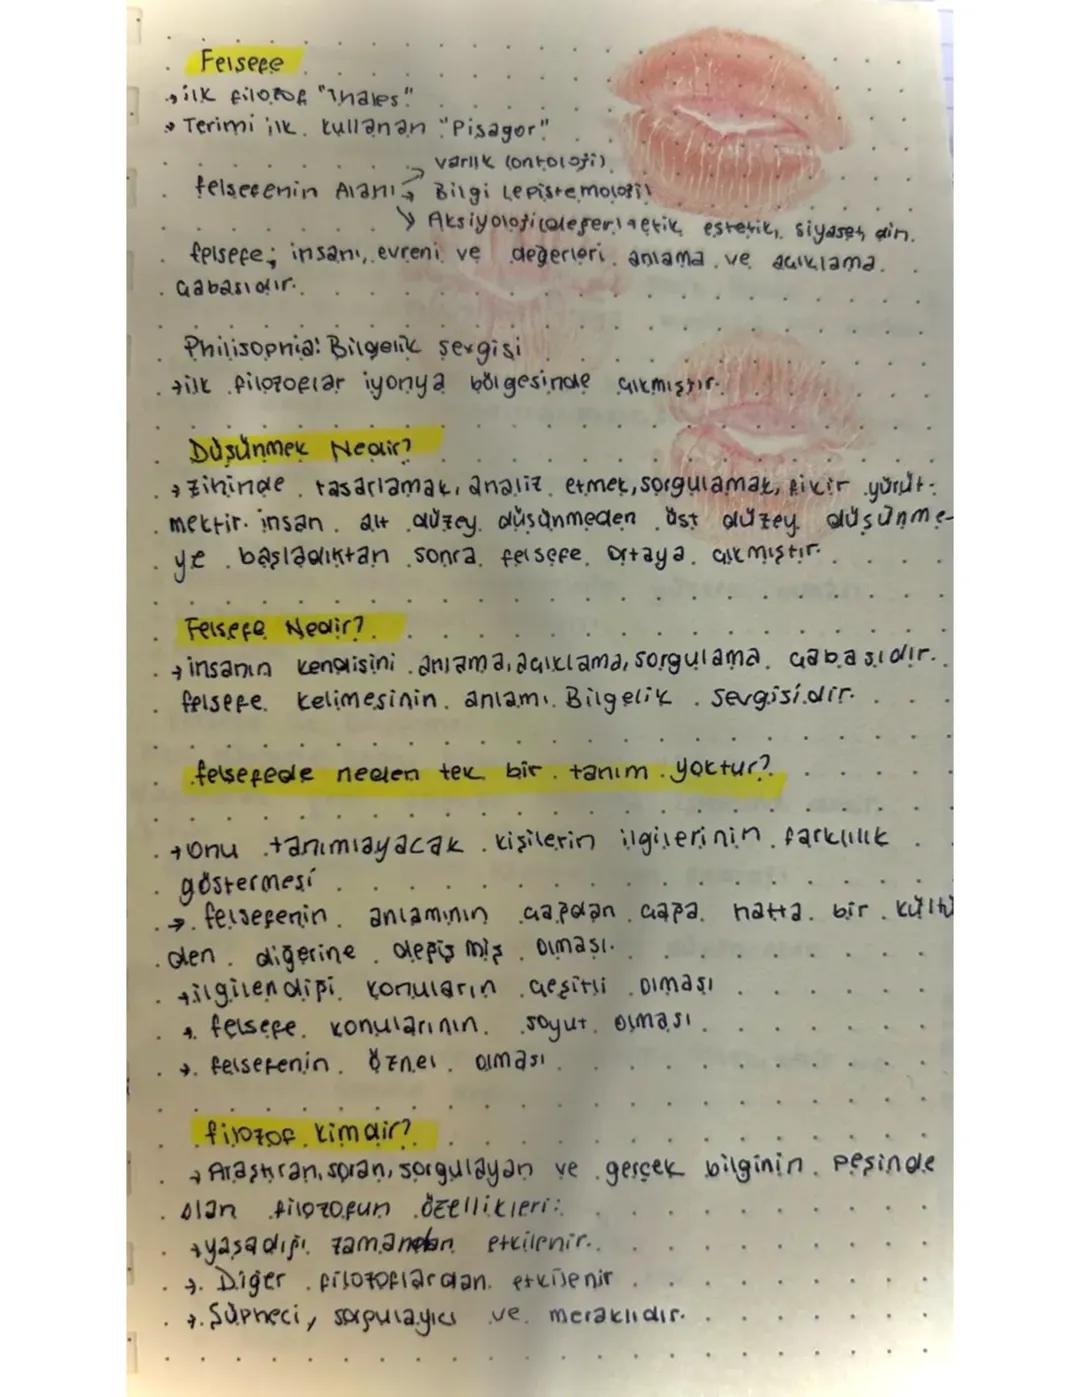 Felsefe
→ ilk filozof "Thales"
→ Terimi ilk kullanan "Pisagor"
→ varlık (ontoloji)
felsefenin Alanı → Bilgi (epistemoloji)
→ Aksiyoloji (değer) → etik, estetik, siyaset, din.
felsefe; insanı, evreni ve değerleri anlama ve açıklama
çabasıdır.
Philisophia: Bilgelik sevgisi
→ ilk filozoflar iyonya bölgesinde çıkmıştır.
Düşünmek Nedir?
→ zihinde tasarlamak, analiz etmek, sorgulamak, fikir yürüt-
mektir. insan alt düzey düşünmeden üst düzey düşünme-
ye başladıktan sonra felsefe ortaya çıkmıştır.
Felsefe Nedir?
→ insanın kendisini anlama, açıklama, sorgulama çabasıdır.
felsefe kelimesinin anlamı Bilgelik sevgisidir.
felsefede neden tek bir tanım yoktur?
→ onu tanımlayacak kişilerin ilgilerinin farklılık
göstermesi
→ felsefenin anlamının çağdan çağa hatta bir kültü
den diğerine değişmiş olması.
→ ilgilendiği konuların çeşitli olması
→ felsefe konularının soyut olması
→ felsefenin öznel olması
filozof kimdir?
→ Araştıran, soran, sorgulayan ve gerçek bilginin peşinde
olan filozofun özellikleri:
→ yaşadığı zamandan etkilenir.
→ Diğer filozoflardan etkilenir
→ Şüpheci, sorgulayıcı ve meraklıdır.